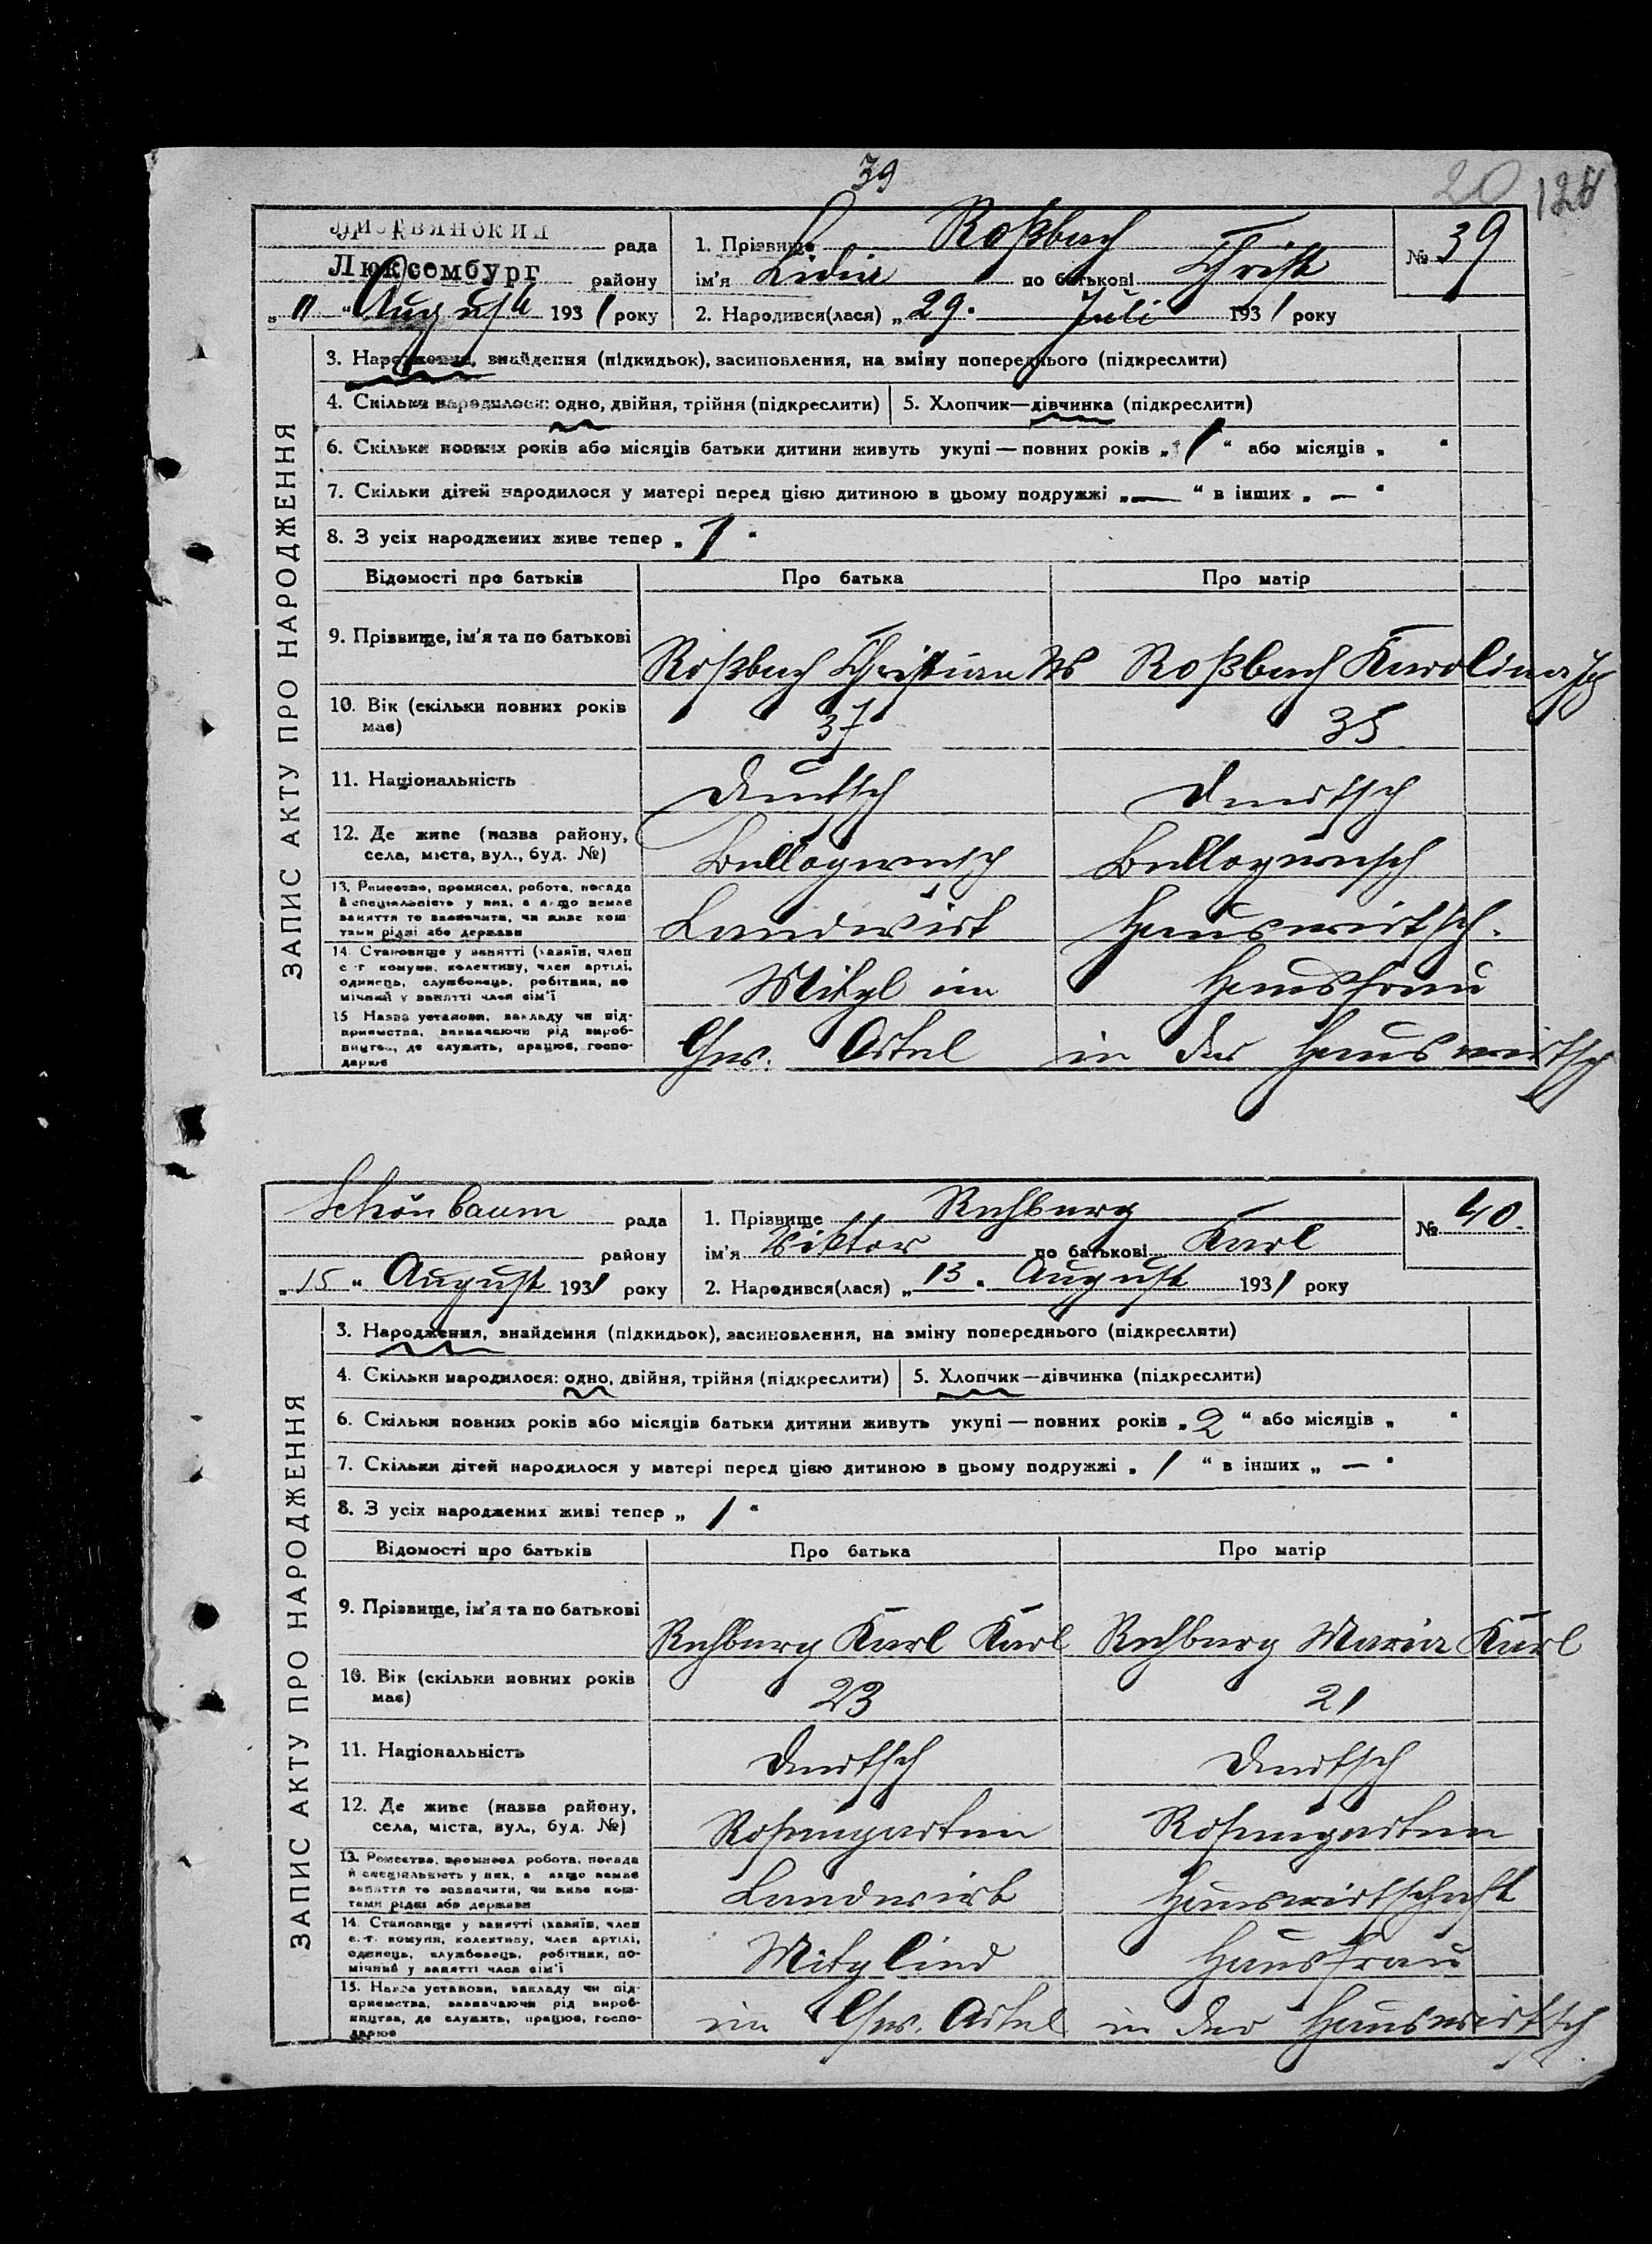 39
20 124
рада
1. Прізвище Roßbach
№ 39
Люксембург району
ім'я Lidia по батькові Christ
„11“ August 1931 року
2. Народився(лася) „29. Juli 1931 року
ЗАПИС АКТУ ПРО НАРОДЖЕННЯ
3. Народження, знайдення (підкидьок), засиновлення, на зміну попереднього (підкреслити)
4. Скільки народилося: одно, двійня, трійня (підкреслити)
5. Хлопчик—дівчинка (підкреслити)
6. Скільки повних років або місяців батьки дитини живуть укупі — повних років „1“ або місяців „ “
7. Скільки дітей народилося у матері перед цією дитиною в цьому подружжі „—“ в інших „—“
8. З усіх народжених живе тепер „1“
Відомості про батьків
Про батька
Про матір
9. Прізвище, ім'я та по батькові
Roßbach Christian
Roßbach Karolina
10. Вік (скільки повних років
має)
37
35
11. Національність
Deutsch
Deutsch
12. Де живе (назва району,
села, міста, вул., буд. №)
13. Ремество, промисел, робота, посада
й спеціяльність у них, а якщо немає
заняття то зазначити, чи живе кош-
тами рідні або держави
Landwirt
Hauswirtsch.
14. Становище у занятті (хазяїн, член
с.-г. комуни, колективу, член артілі,
одинець, службовець, робітник, по-
мічний у занятті член сім'ї
Mitgl im
Hausfrau
15. Назва установи, закладу чи під-
приємства, зазначаючи рід вироб-
ництва, де служить, працює, госпо-
дарює
Gew. Artel
in der Hauswirtsch
Schönbaum рада
1. Прізвище Rehburg
№ 40.
району
ім'я Viktor по батькові Karl
„15“ August 1931 року
2. Народився(лася) „13. August 1931 року
ЗАПИС АКТУ ПРО НАРОДЖЕННЯ
3. Народження, знайдення (підкидьок), засиновлення, на зміну попереднього (підкреслити)
4. Скільки народилося: одно, двійня, трійня (підкреслити)
5. Хлопчик—дівчинка (підкреслити)
6. Скільки повних років або місяців батьки дитини живуть укупі — повних років „2“ або місяців „ “
7. Скільки дітей народилося у матері перед цією дитиною в цьому подружжі „1“ в інших „—“
8. З усіх народжених живі тепер „1“
Відомості про батьків
Про батька
Про матір
9. Прізвище, ім'я та по батькові
Rehburg Karl Karl
Rehburg Maria Karl
10. Вік (скільки повних років
має)
23
21
11. Національність
Deutsch
Deutsch
12. Де живе (назва району,
села, міста, вул., буд. №)
Rosengarten
Rosengarten
13. Ремество, промисел, робота, посада
й спеціяльність у них, а якщо немає
заняття то зазначити, чи живе кош-
тами рідні або держави
Landwirt
Hauswirtschaft
14. Становище у занятті (хазяїн, член
с.-г. комуни, колективу, член артілі,
одинець, службовець, робітник, по-
мічний у занятті член сім'ї
Mitglied
Hausfrau
15. Назва установи, закладу чи під-
приємства, зазначаючи рід вироб-
ництва, де служить, працює, госпо-
дарює
im Gew. Artel
in der Hauswirtsch